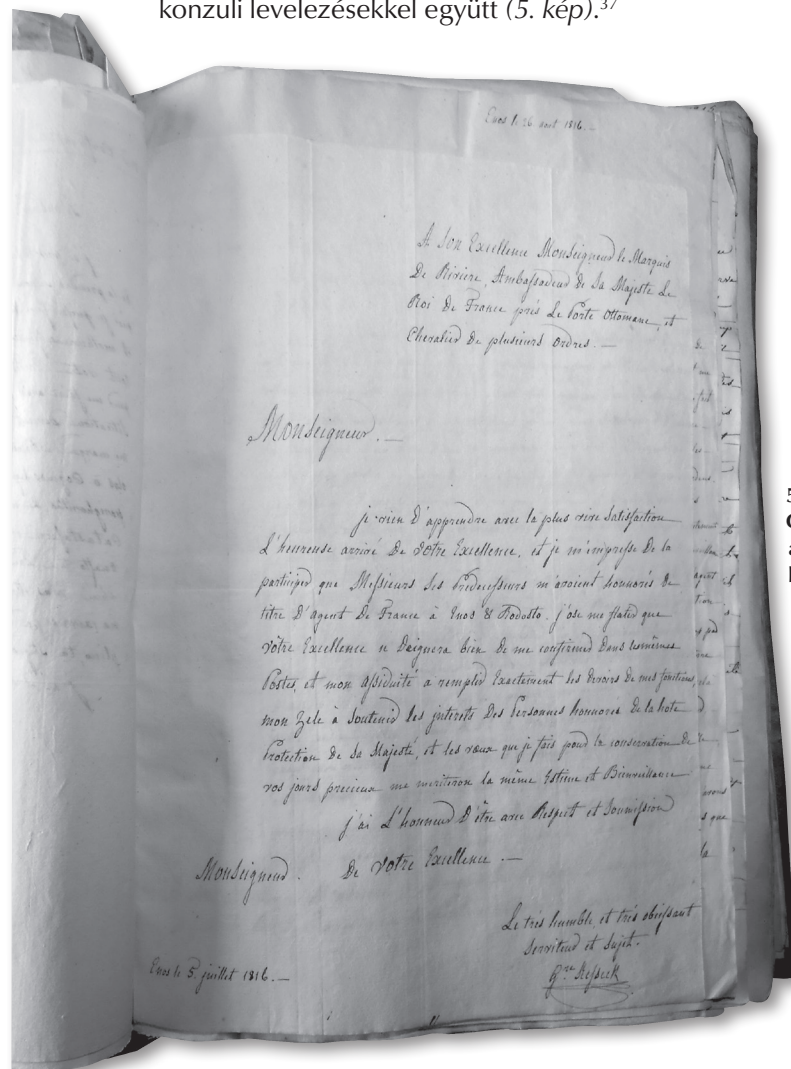 konzuli levelezésekkel együtt (5. kép).37
Enos le 26 aout 1816. —
A Son Excellence Monseigneur le Marquis
De Riviere, Ambassadeur de Sa Majesté Le
Roi De France près La Porte Ottomane, et
Chevalier De plusieurs Ordres. —
Monseigneur. —
je vien D'apprendre avec la plus vive Satisfaction
L'heureuse arrivé De Votre Excellence, et je m'empresse De la
participer que Messieurs Ses Prédecesseurs m'avoient honnorés de
titre D'agent De France à Enos & Rodosto. j'ose me flater que
Votre Excellence n Daignera bien de me confirmer Dans les mêmes
Postes, et mon assiduité a remplir Exactement les Devoirs de mes fonctions,
mon Zele à Soutenir les interets Des Personnes honnorés De la hote
Protection De Sa Majesté, et les vœux que je fais pour la conservation De
vos jours precieux me meriteron la même Estime et Bienveillance
j'ai L'honneur D'être avec Respect et Soumission
Monseigneur. De Votre Excellence. —
Le très humble, et très obeissant
Serviteur et Sujet.
Enos le 5 juillet 1816. —